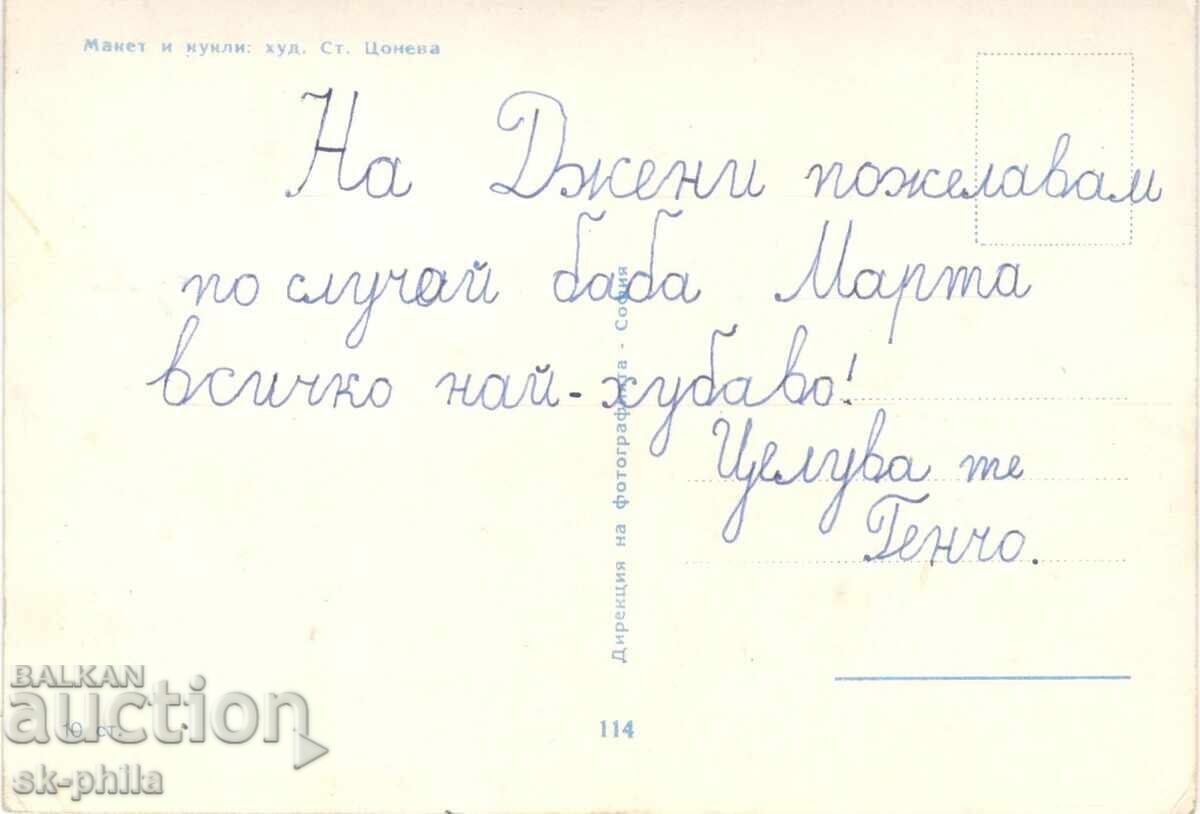 Макет и кукли: худ. Ст. Цонева
На Джени пожелавам
по случай баба Марта
всичко най-хубаво!
Целува те
Генчо.
Дирекция на фотографията - София
10 ст.
114
BALKAN
auction
sk-phila